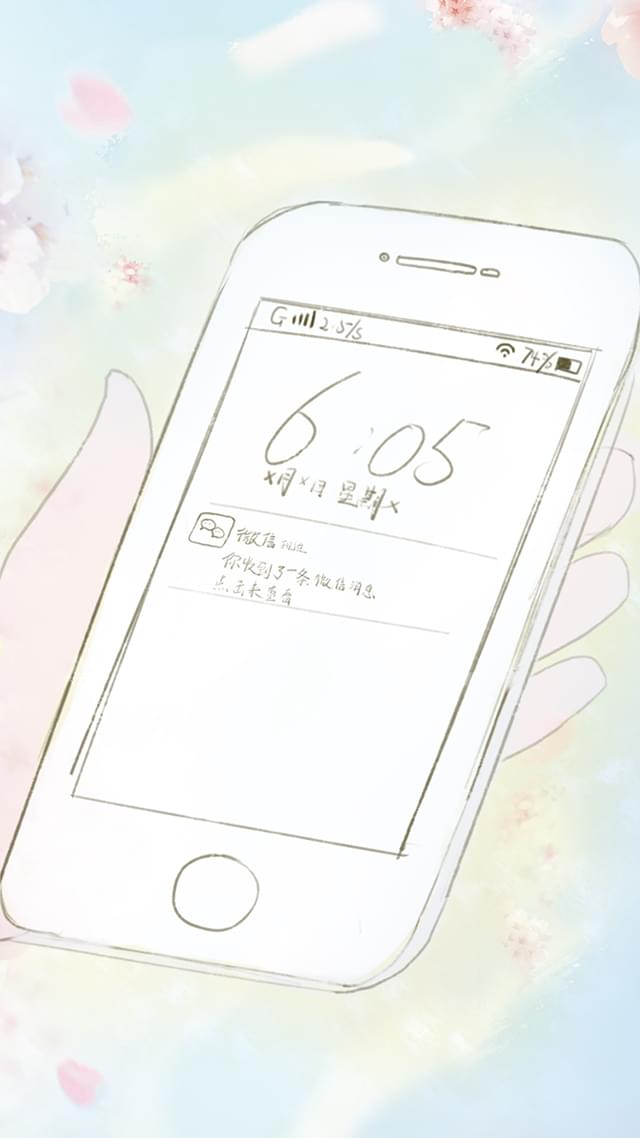 G 2.5/s 74%
6:05
x月x日 星期x
微信 现在
你收到了一条微信消息
点击来查看